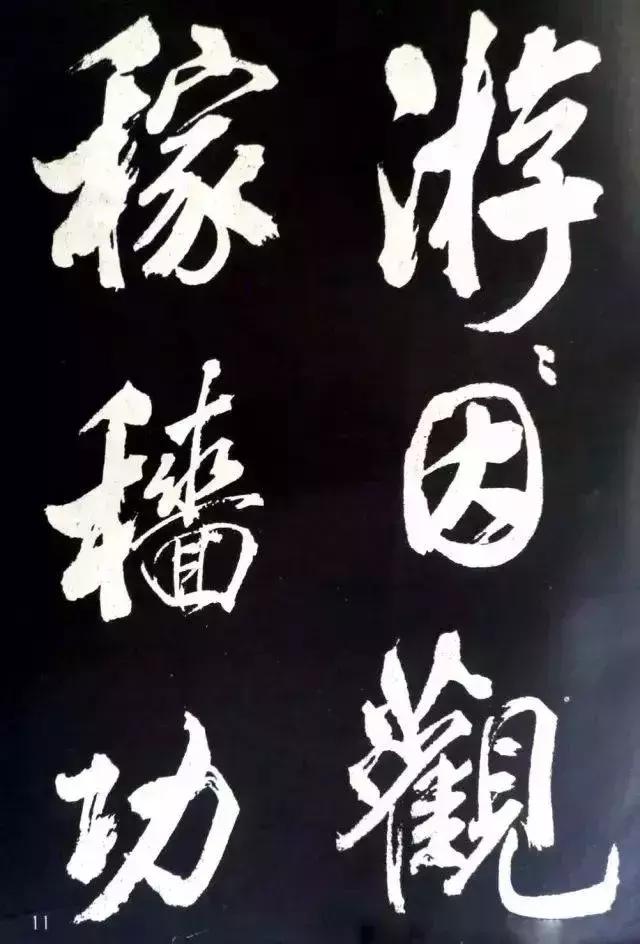 游因觀
稼穡功
11